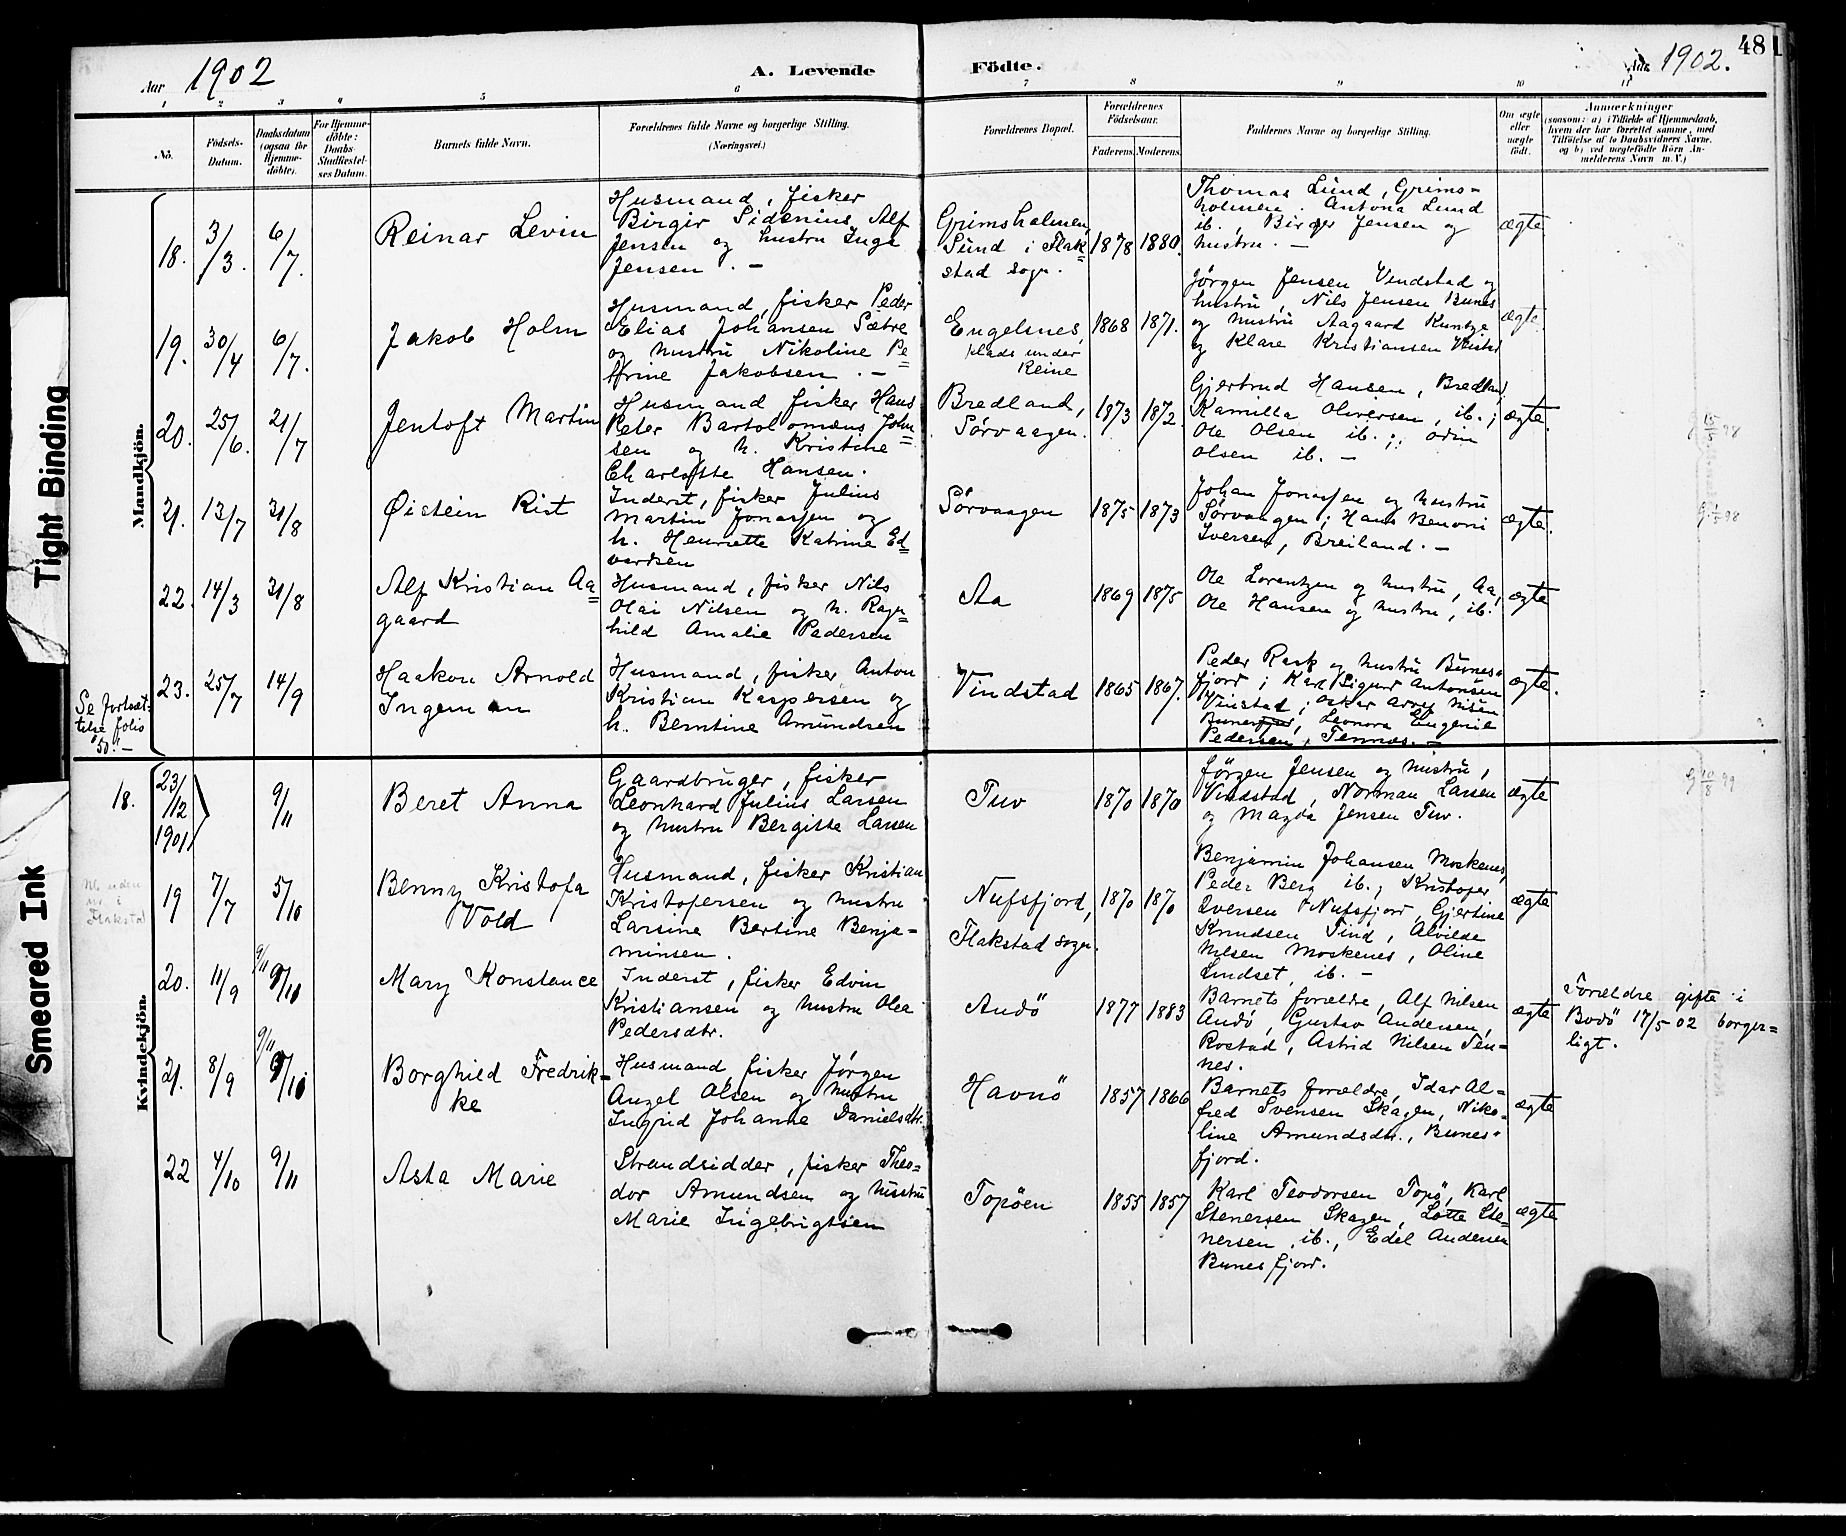 48
Aar 1902
A. Levende Födte.
Aar 1902.
1 2 3 4 5 6 7 8 9 10 11
No.
Födsels-
Datum.
Daabsdatum
(ogsaa for
Hjemme-
döbte).
For Hjemme-
döbte:
Daabs-
Stadfæstel-
ses Datum.
Barnets fulde Navn.
Forældrenes fulde Navne og borgerlige Stilling.
(Næringsvei.)
Forældrenes Bopæl.
Forældrenes
Födselsaar.
Faderens. Moderens.
Faddernes Navne og borgerlige Stilling.
Om ægte
eller
uægte
født.
Anmærkninger
(saasom: a) i Tilfælde af Hjemmedaab,
hvem der har forrettet samme, med
Tilföielse af to Daabsvidners Navne,
og b) ved uægtefödte Börn An-
melderens Navn m. V.)
Mandkjön.
18. 3/3. 6/7.
Reinar Levin
Husmand, fisker
Birgir Sidenius Alf
Jensen og hustru Inga
Jensen. —
Grimsholmen,
Sund i Flak=
stad sogn.
1878 1880.
Thomas Lund, Grims=
holmen. Antona Lund
ib., Birger Jensen og
hustru. —
ægte
19. 30/4 6/7.
Jakob Holm
Husmand, fisker Peder
Elias Johansen Sætre
og hustru Nikoline Pe=
trine Jakobsen. —
Engelsnes,
plads under
Reine
1868 1871.
Jørgen Jensen Vindstad og
hustru, Nils Jensen Bunes
og hustru Aagaard Kuntze
og Klare Kristiansen
ægte.
20. 25/6. 21/7
Jentoft Martin
Husmand, fisker Hans
Peter Bartolomæus John=
sen og h. Kristine
Charlotte Hansen.
Bredland,
Sørvaagen.
1873 1872.
Gjertrud Hansen, Bredland
Kamilla Oliversen, ib.;
Ole Olsen ib.; Odin
Olsen ib. —
ægte.
21. 13/7 31/8
Øistein Rist
Inderst, fisker Julius
Martin Jonassen og
h. Henriette Katrine Ed=
vardsen
Sørvaagen
1875 1873
Johan Jonassen og hustru
Sørvaagen; Hans Benoni
Iversen, Breiland. —
ægte.
22. 14/3 31/8
Alf Kristian Aa=
gaard
Husmand, fisker Nils
Olai Nilsen og h. Ragn=
hild Amalie Pedersen
Aa
1869 1875
Ole Lorentzen og hustru, Aa,
Ole Hansen og hustru, ib.
ægte
23. 25/7 14/9
Haakon Arnold
Ingeman
Husmand, fisker Anton
Kristian Kaspersen og
h. Berntine Amundsen
Vindstad
1865 1867.
Peder Rask og hustru Bunes=
fjord; Karl Sigurd Antonsen
Vinstad; Oskar Nilsen
Bunesfjord, Leonora Eugenie
Pedersen, Tennes. —
ægte.
Se fortsæt-
telse folio
50. —
Kvindekjön.
18. 23/12 1901 9/11
Beret Anna
Gaardbruger, fisker
Leonhard Julius Larsen
og hustru Bergitte Larsen
Tuv
1870 1870
Jørgen Jensen og hustru,
Vindstad, Norman Larsen
og Magda Jensen Tuv.
ægte
19 7/7 5/10
Benny Kristofa
Vold
Husmand, fisker Kristian
Kristofersen og hustru
Larsine Bertine Benja-
minsen.
Nufsfjord,
Flakstad sogn.
1870 1870
Benjamin Johansen Moskenes,
Peder Berg ib.; Kristofer
Iversen Nufsfjord, Gjertine
Knudsen Tind, Alvilde
Nilsen Moskenes, Oline
Lindset, ib. —
ægte
20. 11/9 9/11 9/10
Mary Konstance
Inderst, fisker Edvin
Kristiansen og hustru Olea
Pedersdtr.
Andö
1877 1883
Barnets forældre, Alf Nilsen
Andö, Gustav Andersen,
Rostad, Astrid Nilsen Ten-
nes.
ægte
Forældre gifte i
Bodö 17/5 02 borger=
ligt.
21. 8/9 9/11 9/10
Borghild Fredrik-
ke
Husmand, fisker Jørgen
Angel Olsen og hustru
Ingrid Johanne Danielsdtr.
Havnö
1857 1866
Barnets forældre, Idar Al-
fred Svensen Skagen, Niko-
line Amundsdtr., Bunes=
fjord.
ægte
22 4/10 9/11
Asta Marie
Strandsidder, fisker Theo-
dor Amundsen og hustru
Marie Ingebrigtsen
Topöen
1855 1857
Karl Teodorsen Topö, Karl
Stenersen Skagen, Lotte Ste-
nersen, ib., Edel Andersen
Bunesfjord.
ægte
Tight Binding
Smeared Ink